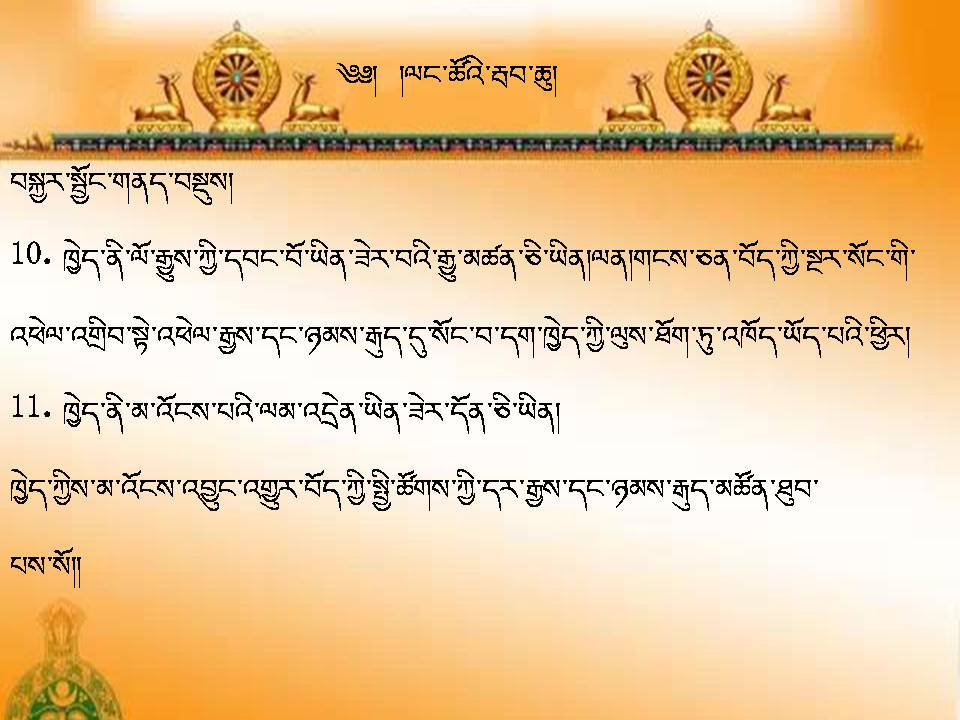 ༄༅། །ལང་ཚོའི་རྦབ་ཆུ།
བསྐྱར་སྦྱོང་གནད་བསྡུས།
10. ཁྱེད་ནི་ལོ་རྒྱུས་ཀྱི་དབང་བོ་ཡིན་ཟེར་བའི་རྒྱུ་མཚན་ཅི་ཡིན།ལན།གངས་ཅན་བོད་ཀྱི་སྔར་སོང་གི་
འཕེལ་འགྲིབ་སྟེ་འཕེལ་རྒྱས་དང་ཉམས་རྒུད་དུ་སོང་བ་དག་ཁྱེད་ཀྱི་ལུས་ཐོག་ཏུ་འཁོད་ཡོད་པའི་ཕྱིར།
11. ཁྱེད་ནི་མ་འོངས་པའི་ལམ་འདྲེན་ཡིན་ཟེར་དོན་ཅི་ཡིན།
ཁྱེད་ཀྱིས་མ་འོངས་འབྱུང་འགྱུར་བོད་ཀྱི་སྤྱི་ཚོགས་ཀྱི་དར་རྒྱས་དང་ཉམས་རྒུད་མཚོན་ཐུབ་
པས་སོ།།